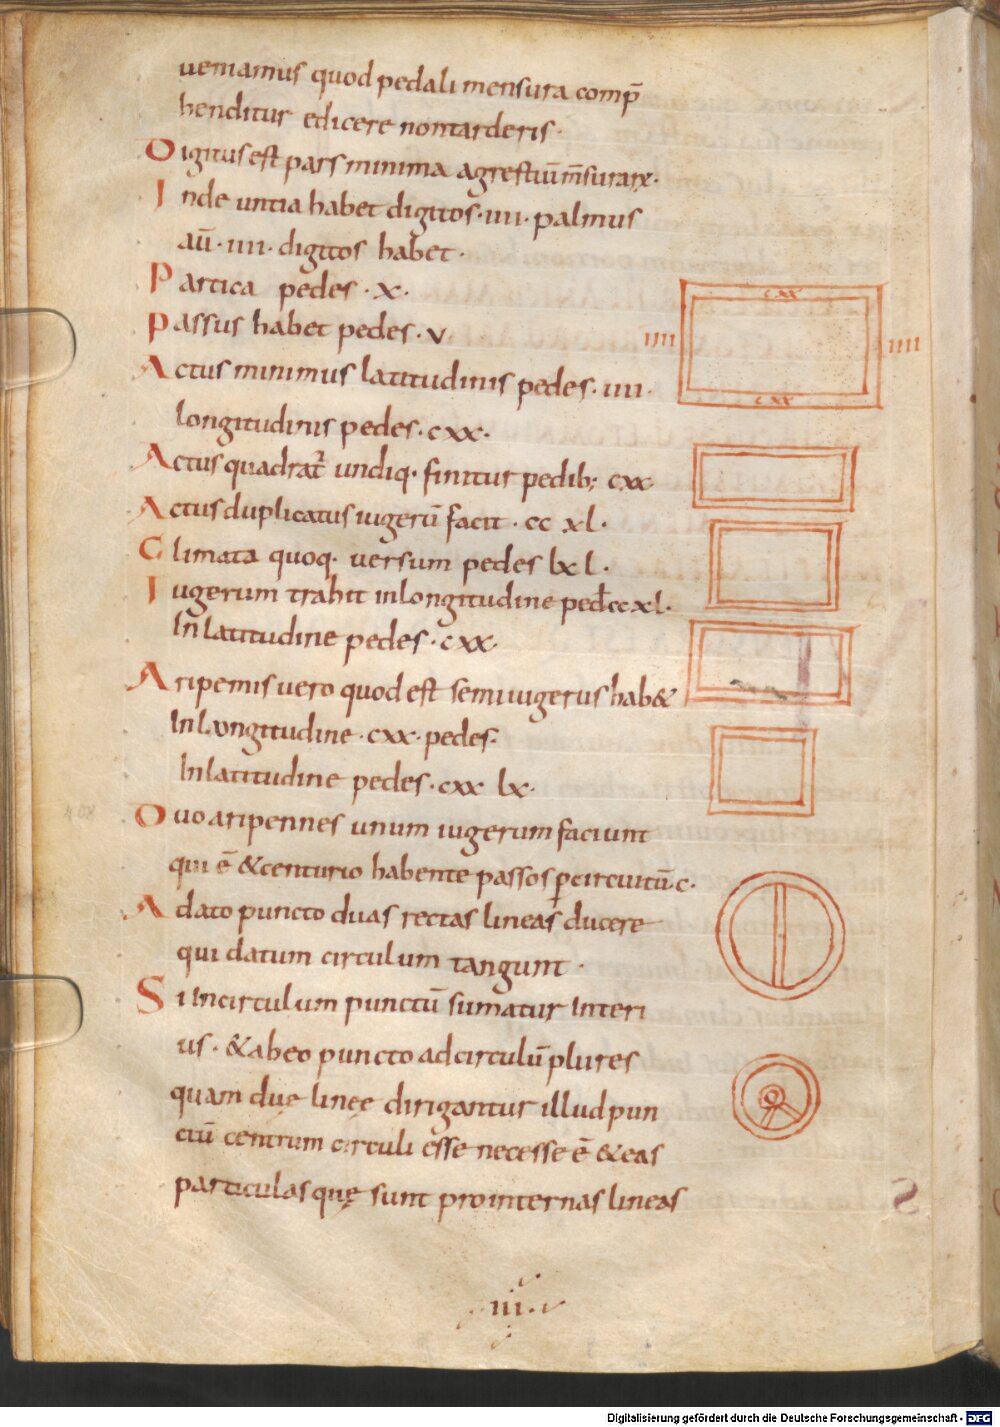 ueniamus quod pedali mensura comp̄
henditur edicere non tarderis·
Digitus est pars minima agrestiū m̄surarꝝ·
Inde untia habet digitos· iiii · palmus
aū · iiii · digitos habet ·
Partica pedes · x ·
Passus habet pedes · v
Actus minimus latitudinis pedes · iiii ·
longitudinis pedes · cxx ·
Actus quadrat᷒ undiq· finitur pedib; cxx
Actus duplicatus iugerū facit · cc xl ·
Climata quoq· versum pedes lx l ·
Iugerum trahit in longitudine ped̄ cc xl ·
In latitudine pedes · cxx ·
Aripemis uero quod est semiiugerus hab&
In longitudine · cxx · pedes ·
In latitudine pedes · cxx lx ·
Duo aripennes unum iugerum faciunt
qui ē & centurio habente passos ꝑ circuitū · c ·
A dato puncto duas rectas lineas ducere
qui datum circulum tangunt ·
Si in circulum punctū sumatur interi
us · & ab eo puncto ad circulū plures
quam due lineę dirigantur illud pun
ctū centrum circuli esse necesse ē & eas
particulas quę sunt pro internas lineas
cxx
iiii
iiii
cxx
·iii·
Digitalisierung gefördert durch die Deutsche Forschungsgemeinschaft - DFG